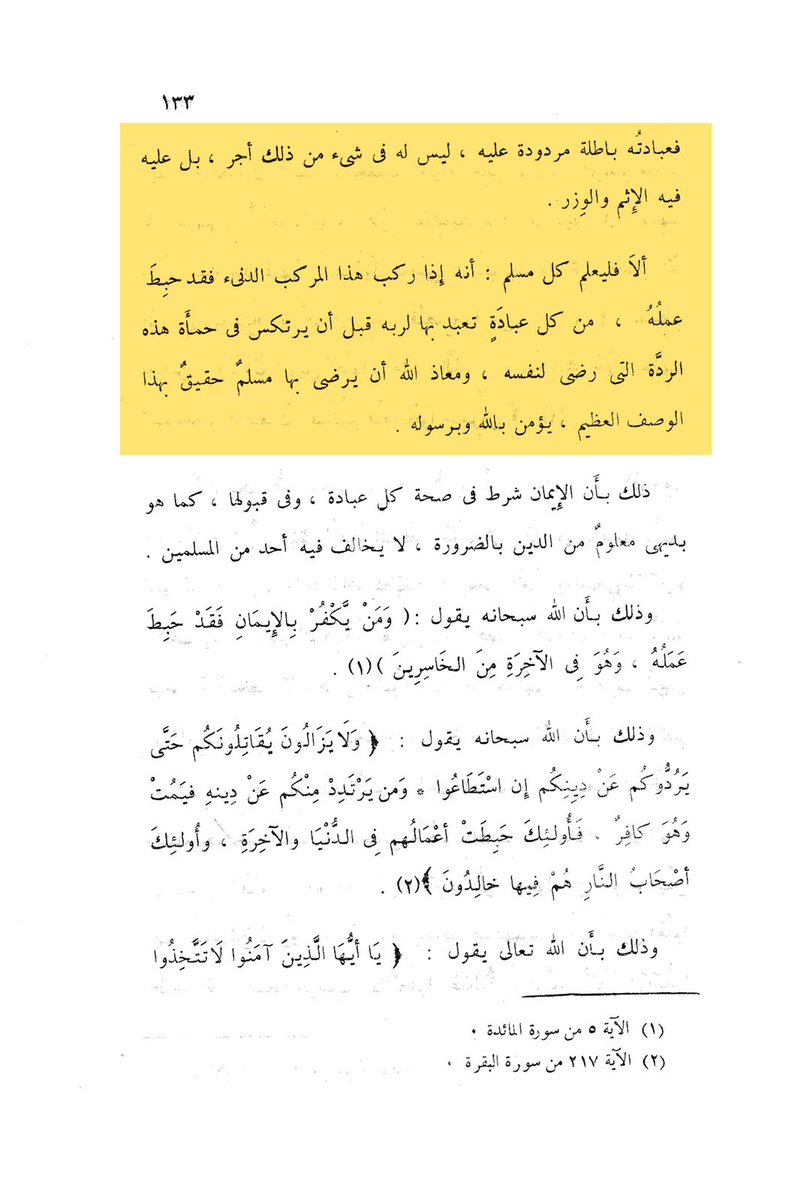 ١٣٣
فعبادتُه باطلة مردودة عليه ، ليس له فى شىء من ذلك أجر ، بل عليه
فيه الإِثم والوِزر .
ألاَ فليعلم كل مسلم : أنه إِذا ركب هذا المركب الدنىء فقد حبِطَ
عملُهُ ، من كل عبادَةٍ تعبد بها لربه قبل أن يرتكس فى حمأَة هذه
الردَّة التى رضى لنفسه ، ومعاذ الله أن يرضى بها مسلمٌ حقيقٌ بهذا
الوصف العظيم ، يؤمن بالله وبرسوله .
ذلك بأَن الإِيمان شرط فى صحة كل عبادة ، وفى قبولها ، كما هو
بديهى معلومٌ من الدين بالضرورة ، لا يخالف فيه أحد من المسلمين .
وذلك بأَن الله سبحانه يقول : ( وَمَنْ يَّكْفُرْ بِالإِيمَانِ فَقَدْ حَبِطَ
عَمَلُهُ ، وَهُوَ فِى الآخِرَةِ مِنَ الخَاسِرِينَ )(١) .
وذلك بأَن الله سبحانه يقول : ﴿ وَلَا يَزَالُونَ يُقَاتِلُونَكُم حَتَّى
يَرُدُّوكُم عَنْ دِيِنِكُم إِن اسْتَطَاعُوا * وَمَن يَرْتَدِدْ مِنْكُم عَنْ دِينهِ فيَمُتْ
وَهُوَ كافِرٌ . فَأُولئِكَ حَبِطَتْ أعْمَالُهم فِى الدُّنْيَا والآخِرَةِ ، وأُولئِكَ
أصْحَابُ النَّارِ هُمْ فِيها خالِدُونَ ﴾(٢) .
وذلك بأَن الله تعالى يقول : ﴿ يَا أيُّهَا الَّذِينَ آمَنُوا لَا تَتَّخِذُوا
(١) الآية ٥ من سورة المائدة .
(٢) الآية ٢١٧ من سورة البقرة .